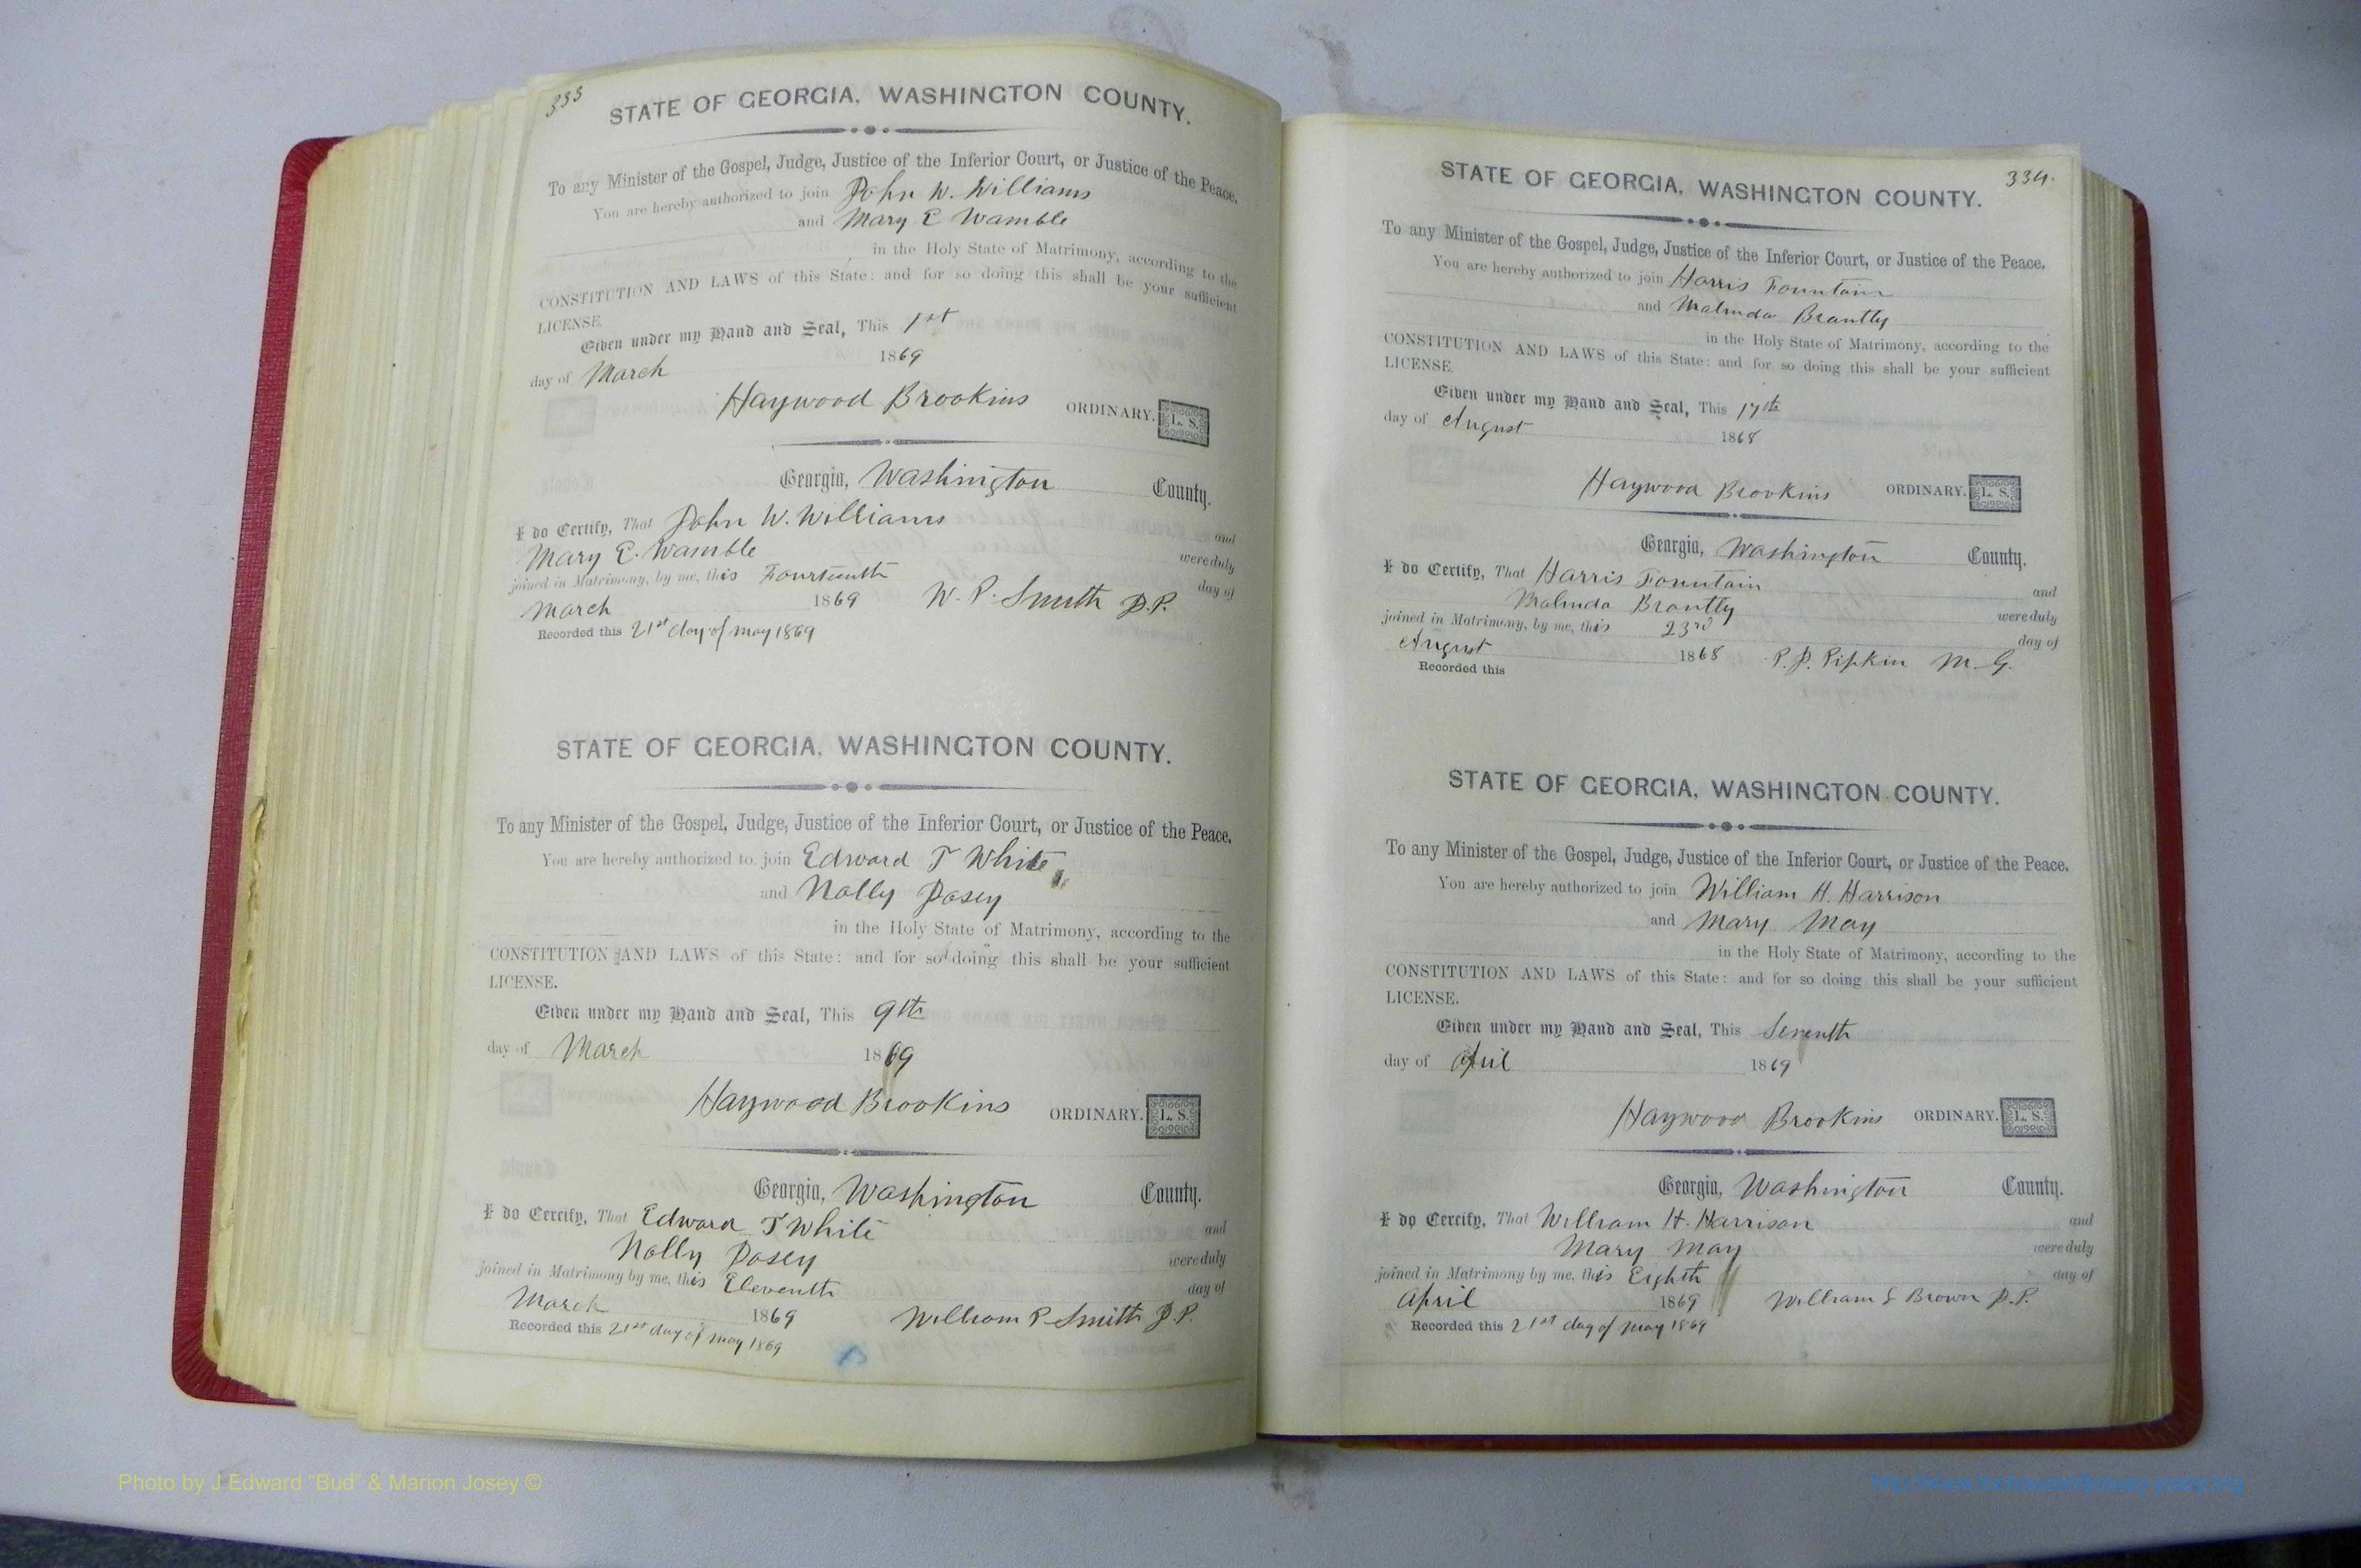 333
STATE OF GEORGIA, WASHINGTON COUNTY.
To any Minister of the Gospel, Judge, Justice of the Inferior Court, or Justice of the Peace.
You are hereby authorized to join John W. Williams
and Mary E Wamble
in the Holy State of Matrimony, according to the
CONSTITUTION AND LAWS of this State: and for so doing this shall be your sufficient
LICENSE.
Given under my Hand and Seal, This 1st
day of March 1869
Haywood Brookins ORDINARY. L. S.
Georgia, Washington County.
I do Certify, That John W. Williams and
Mary E. Wamble were duly
joined in Matrimony, by me, this Fourteenth day of
March 1869 W. P. Smith J.P.
Recorded this 21st day of may 1869
STATE OF GEORGIA, WASHINGTON COUNTY.
To any Minister of the Gospel, Judge, Justice of the Inferior Court, or Justice of the Peace.
You are hereby authorized to join Edward T White
and Nolly Posey
in the Holy State of Matrimony, according to the
CONSTITUTION AND LAWS of this State: and for so doing this shall be your sufficient
LICENSE.
Given under my Hand and Seal, This 9th
day of March 1869
Haywood Brookins ORDINARY. L. S.
Georgia, Washington County.
I do Cercify, That Edward T White and
Nolly Posey were duly
joined in Matrimony by me, this Eleventh day of
March 1869 William P Smith J.P.
Recorded this 21st day of may 1869
334.
STATE OF GEORGIA, WASHINGTON COUNTY.
To any Minister of the Gospel, Judge, Justice of the Inferior Court, or Justice of the Peace.
You are hereby authorized to join Harris Fountain
and Malinda Brantly
in the Holy State of Matrimony, according to the
CONSTITUTION AND LAWS of this State: and for so doing this shall be your sufficient
LICENSE.
Given under my Hand and Seal, This 17th
day of August 1868
Haywood Brookins ORDINARY. L. S.
Georgia, Washington County.
I do Certify, That Harris Fountain and
Malinda Brantly were duly
joined in Matrimony, by me, this 23rd day of
August 1868 P. D. Pipkin M. G.
Recorded this
STATE OF GEORGIA, WASHINGTON COUNTY.
To any Minister of the Gospel, Judge, Justice of the Inferior Court, or Justice of the Peace.
You are hereby authorized to join William H. Harrison
and Mary May
in the Holy State of Matrimony, according to the
CONSTITUTION AND LAWS of this State: and for so doing this shall be your sufficient
LICENSE.
Given under my Hand and Seal, This Seventh
day of April 1869
Haywood Brookins ORDINARY. L. S.
Georgia, Washington County.
I do Cercify, That William H. Harrison and
Mary May were duly
joined in Matrimony by me, this Eighth day of
April 1869 William S Brown J.P.
Recorded this 21st day of may 1869
Photo by J Edward "Bud" & Marion Josey ©